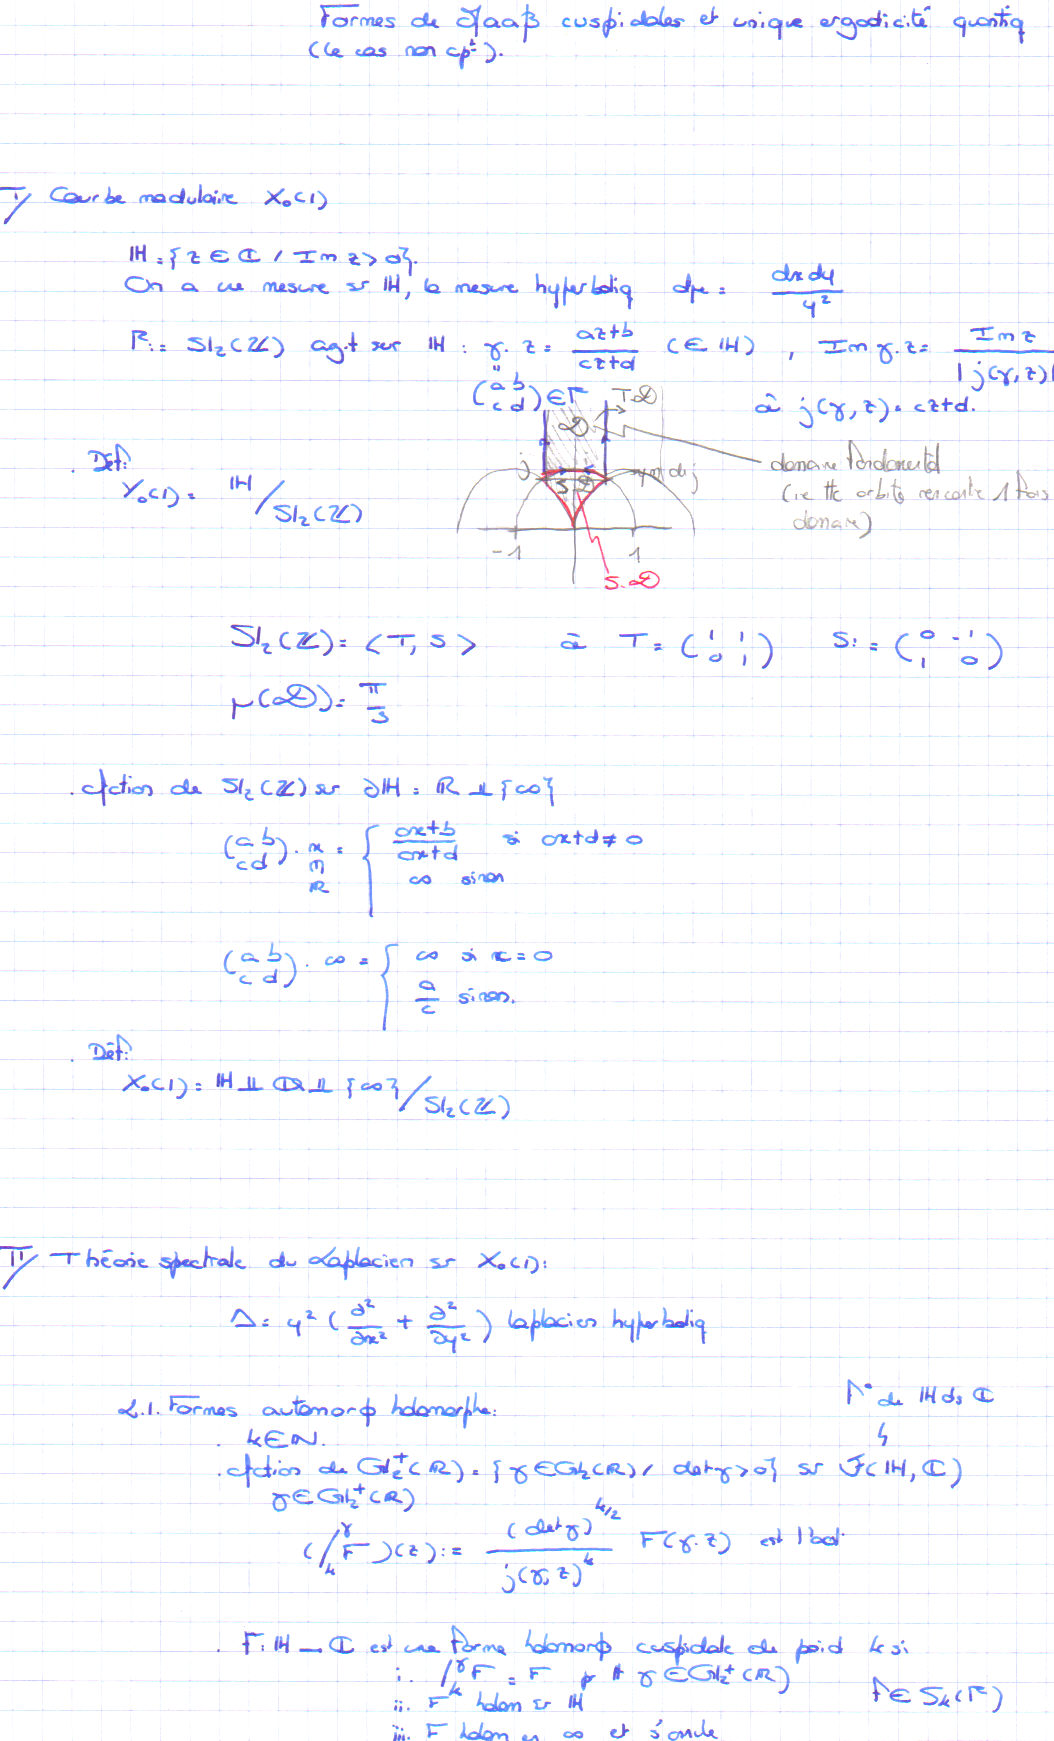 Formes de Maaß cuspidales et unique ergodicité quantiq
(le cas non cpt).
I/ Courbe modulaire X₀(1)
IH = {z ∈ ℂ / Im z > 0}.
On a une mesure sr IH, la mesure hyperboliq dμ = dxdy/y²
Γ := Sl₂(ℤ) agit sur IH : γ. z = (az+b)/(cz+d) (∈ IH) , Im γ.z = Im z/|j(γ,z)|
(a b / c d) ∈ Γ
où j(γ,z) = cz+d.
. Déf:
Y₀(1) = IH/Sl₂(ℤ)
D T.D
j
S.D
-1 1
domaine fondamental
(ie tte orbite rencontre 1 fois
domaine)
Sl₂(ℤ) = <T, S> où T = (1 1 / 0 1) S := (0 -1 / 1 0)
μ(D) = π/3
. Action de Sl₂(ℤ) sr ∂IH = ℝ ⊥⊥ {∞}
(a b / c d) . x ∈ ℝ = { (ax+b)/(cx+d) si cx+d ≠ 0
∞ sinon
(a b / c d) . ∞ = { ∞ si c = 0
a/c sinon.
. Déf:
X₀(1) = IH ⊥⊥ ℚ ⊥⊥ {∞}/Sl₂(ℤ)
II/ Théorie spectrale du Laplacien sr X₀(1):
Δ = y² (∂²/∂x² + ∂²/∂y²) laplacien hyperboliq
2.1. Formes automorφ holomorphe:
f° de IH ds ℂ
. k ∈ ℕ.
. Action de Gl₂⁺(ℝ) = {γ ∈ Gl₂(ℝ) / det γ > 0} sr F(IH, ℂ)
γ ∈ Gl₂⁺(ℝ)
(/ₖ^γ F)(z) := (det γ)^{k/2}/j(γ,z)^k F(γ.z) est
. F: IH → ℂ est une forme holomorφ cuspidale de poid k si
i. /ₖ^γ F = F pr tt γ ∈ Gl₂⁺(ℝ)
f ∈ Sₖ(Γ)
ii. F holom sr IH
iii. F holom en ∞ et s'annule